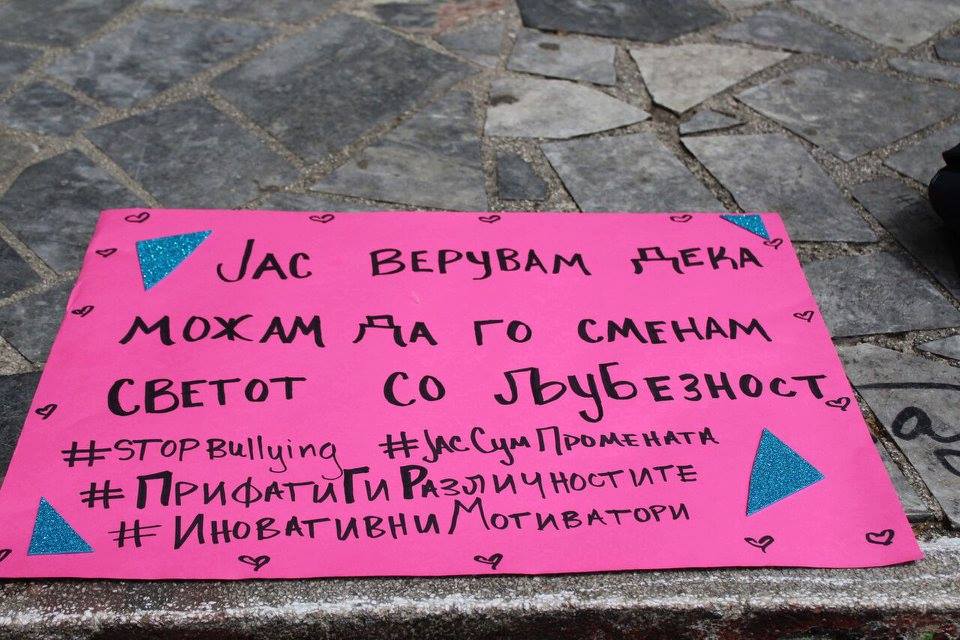 ЈАС ВЕРУВАМ ДЕКА
МОЖАМ ДА ГО СМЕНАМ
СВЕТОТ СО ЉУБЕЗНОСТ
#STOPBullying #ЈасСумПромената
#ПрифатиГиРазличностите
#ИновативниМотиватори